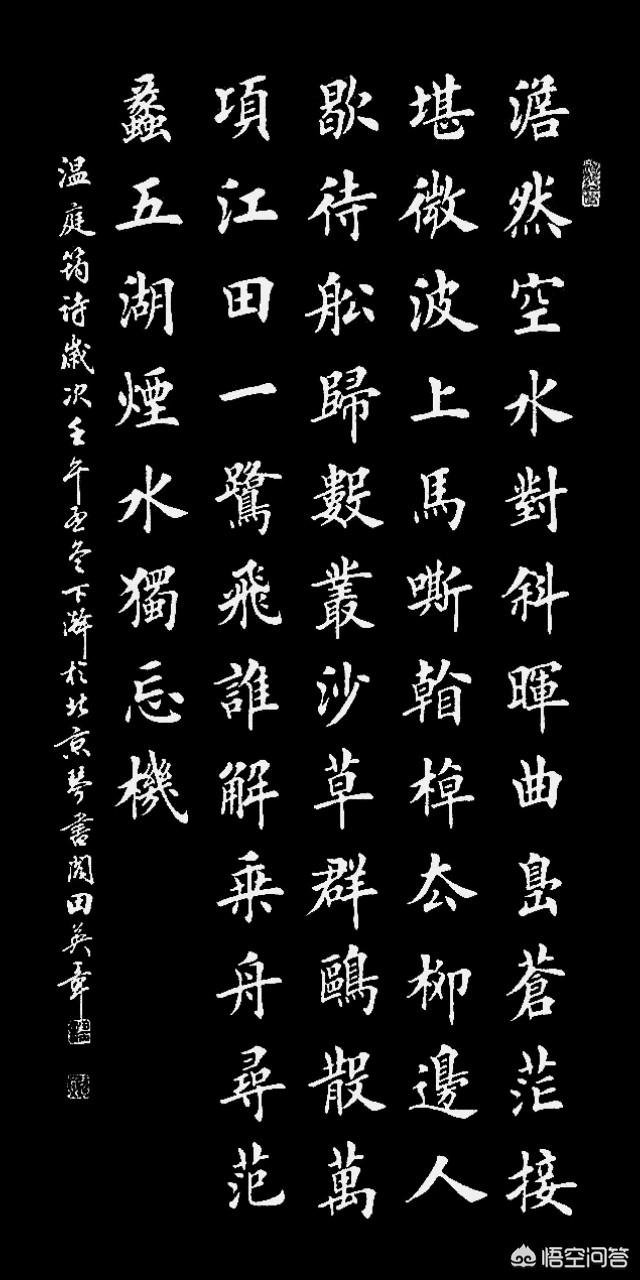 澹然空水對斜暉曲島蒼茫接
堪微波上馬嘶看棹厺柳邊人
歇待舩歸數叢沙草群鷗散萬
項江田一鷺飛誰解乘舟尋范
蠡五湖煙水獨忘機
温庭筠诗歲次壬午孟冬下澣於北京琴書閣田英章
悟空问答